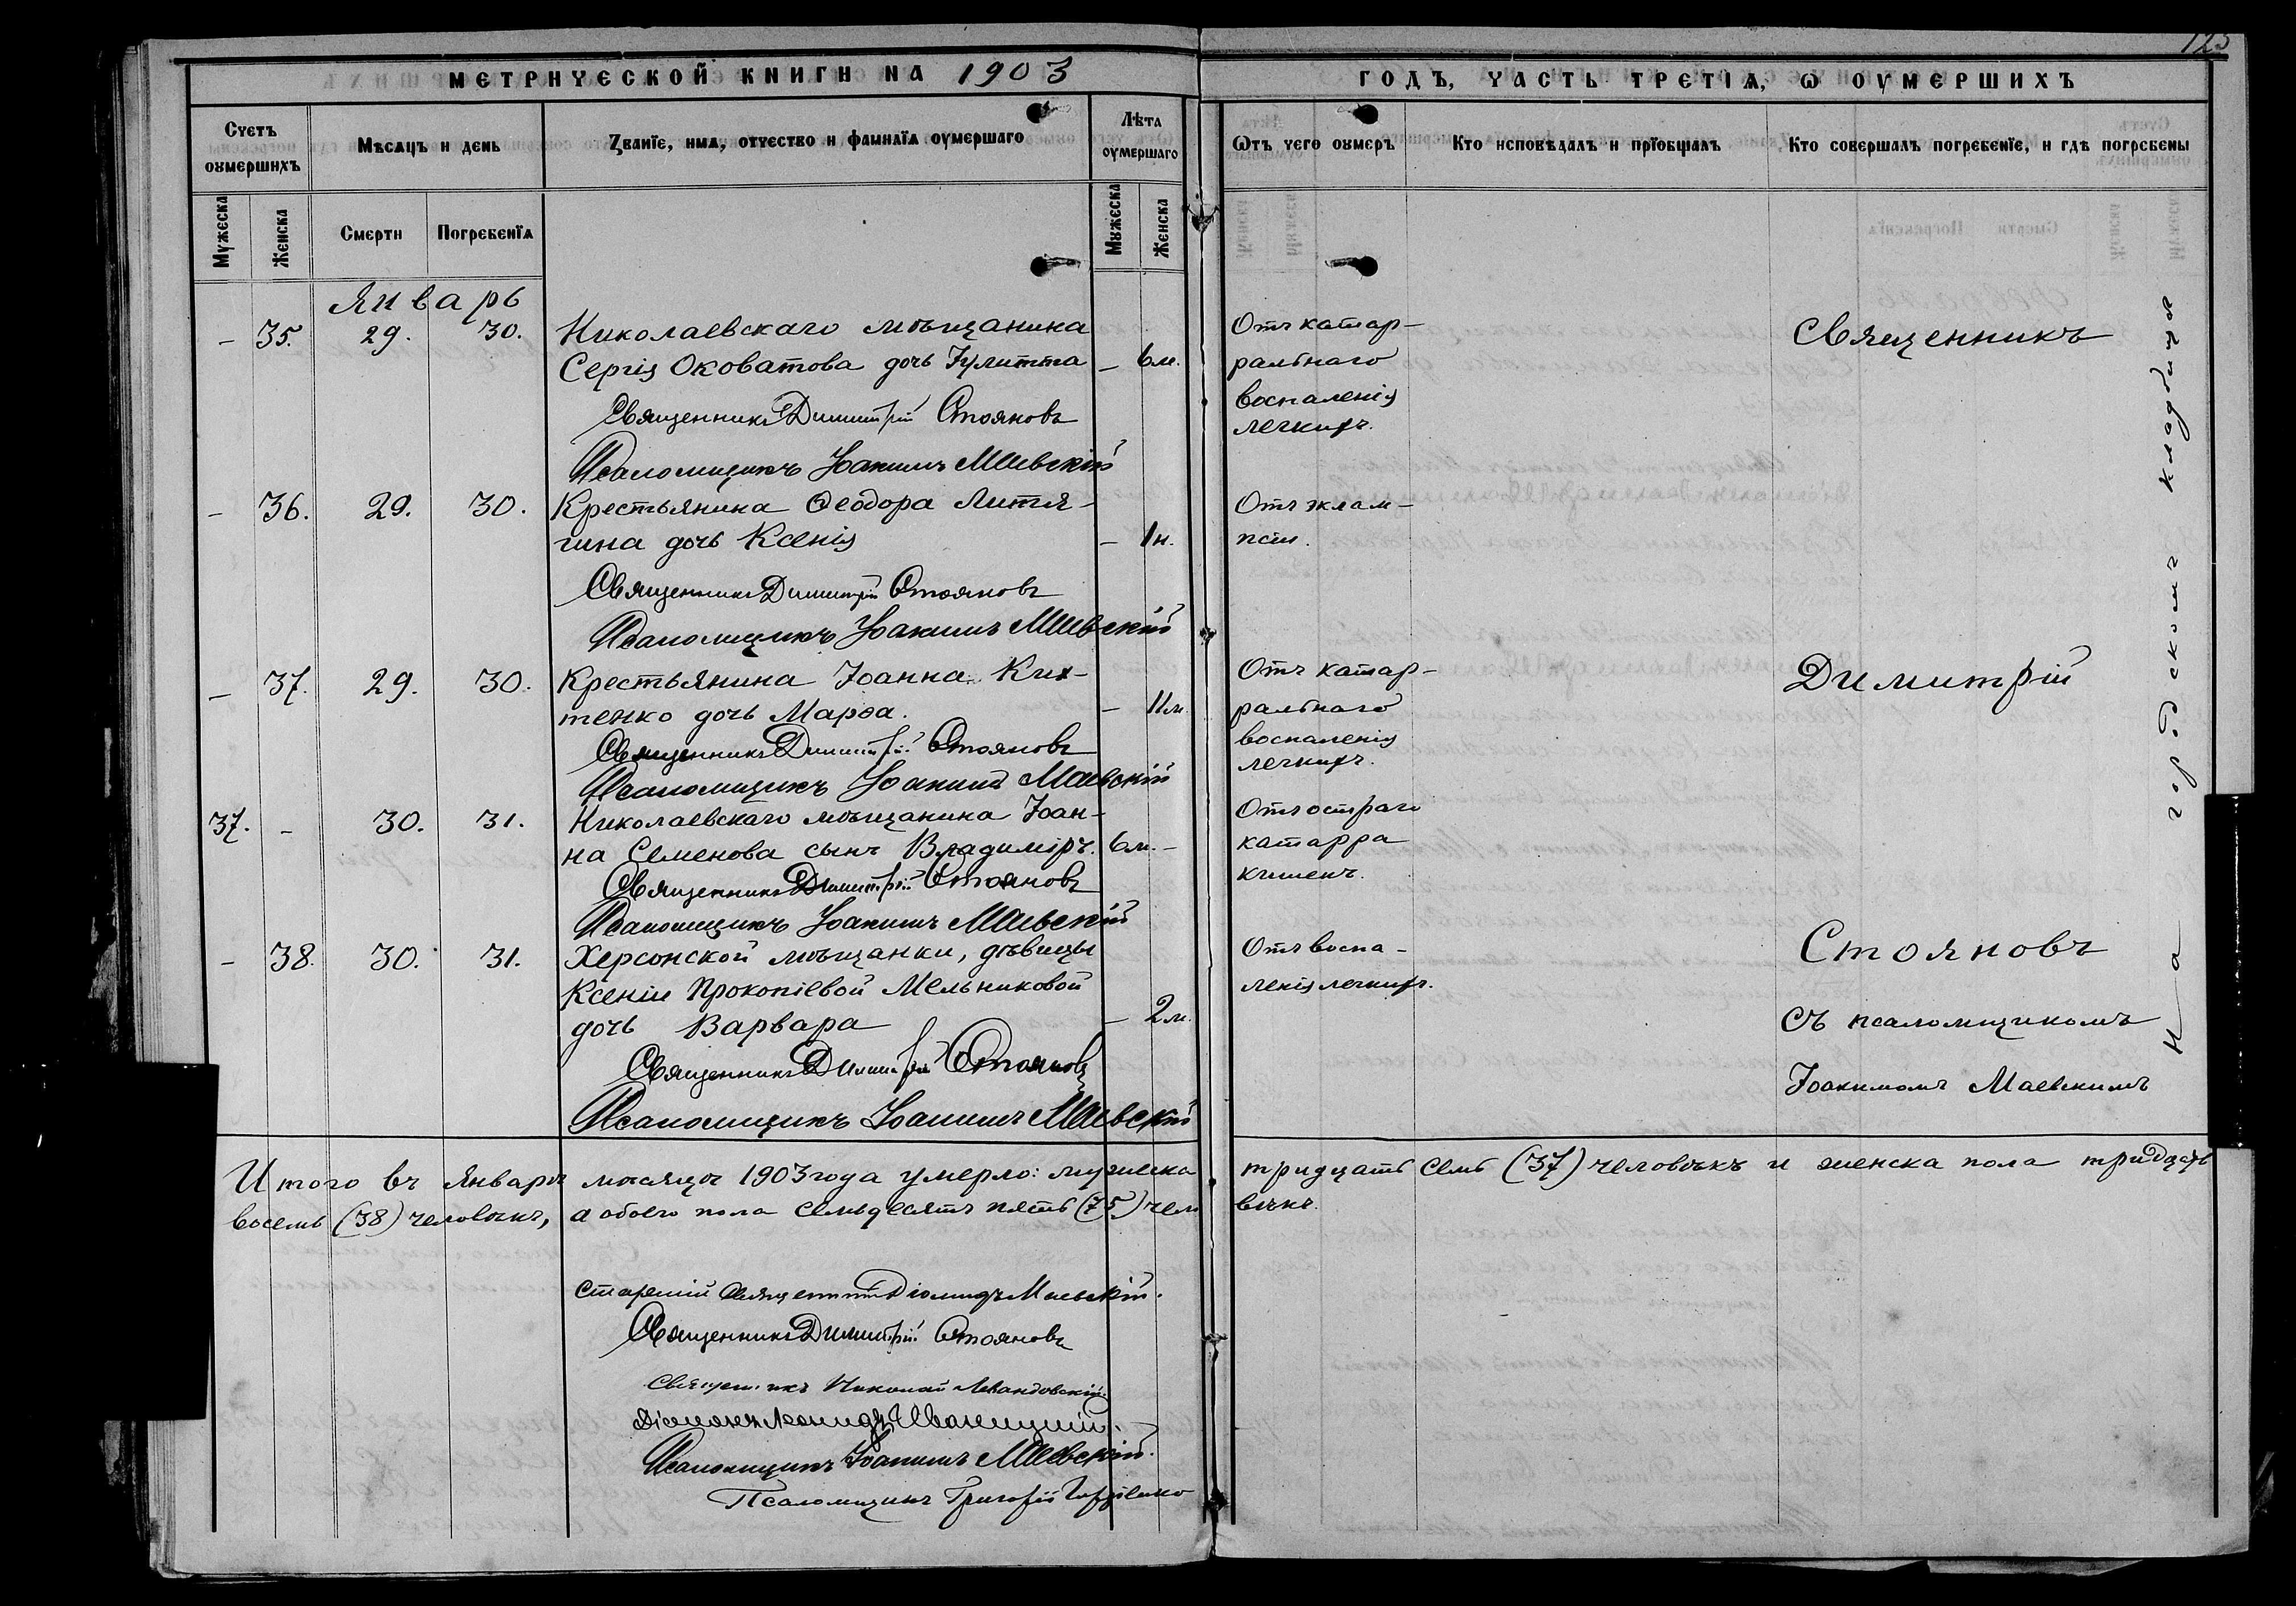 125
МЕТРИЧЕСКОЙ КНИГИ НА 1903 ГОДЪ, ЧАСТЬ ТРЕТІѦ, Ѡ ОУМЕРШИХЪ
Счетъ оумершихъ
Мѣсѧцъ и день
Званїе, имѧ, отчество и фамилїа оумершаго
Лѣта оумершаго
Ѿтъ чего оумеръ
Кто исповѣдалъ и прїобщалъ
Кто совершалъ погребенїе, и гдѣ погребены
Мужеска
Женска
Смерти
Погребенїѧ
Мужеска
Женска
Январь
– 35. 29. 30. Николаевскаго мѣщанина
Сергія Оковатова дочь Іулитта – 6 м.
Отъ катар-
ральнаго
воспаленія
легкихъ.
Священникъ Димитрій Стояновъ
Псаломщикъ Іоакимъ Маевскій
– 36. 29. 30. Крестьянина Ѳеодора Литвя-
гина дочь Ксенія – 1 н.
Отъ эклам-
псіи.
Священникъ Димитрій Стояновъ
Псаломщикъ Іоакимъ Маевскій
– 37. 29. 30. Крестьянина Іоанна Ких-
тенко дочь Марѳа. – 11 м.
Отъ катар-
ральнаго
воспаленія
легкихъ.
Священникъ Димитрій Стояновъ
Псаломщикъ Іоакимъ Маевскій
37. – 30. 31. Николаевскаго мѣщанина Іоан-
на Семенова сынъ Владиміръ. 6 м. –
Отъ остраго
катарра
кишекъ.
Священникъ Димитрій Стояновъ
Псаломщикъ Іоакимъ Маевскій
– 38. 30. 31. Херсонской мѣщанки, дѣвицы
Ксеніи Прокопіевой Мельниковой
дочь Варвара – 2 м.
Отъ воспа-
ленія легкихъ.
Священникъ Димитрій Стояновъ
Псаломщикъ Іоакимъ Маевскій
Священникъ
Димитрій
Стояновъ
съ псаломщикомъ
Іоакимомъ Маевскимъ
На городскомъ кладбищѣ
Итого въ Январѣ мѣсяцѣ 1903 года умерло: мужеска тридцать семь (37) человѣкъ и женска пола тридцать
восемь (38) человѣкъ, а обоего пола семьдесятъ пять (75) чело вѣкъ.
Старшій Священникъ Діомидъ Маевскій.
Священникъ Димитрій Стояновъ
Священникъ Николай Левандовскій
Діаконъ Леонидъ Иваницкій.
Псаломщикъ Іоакимъ Маевскій.
Псаломщикъ Григорій